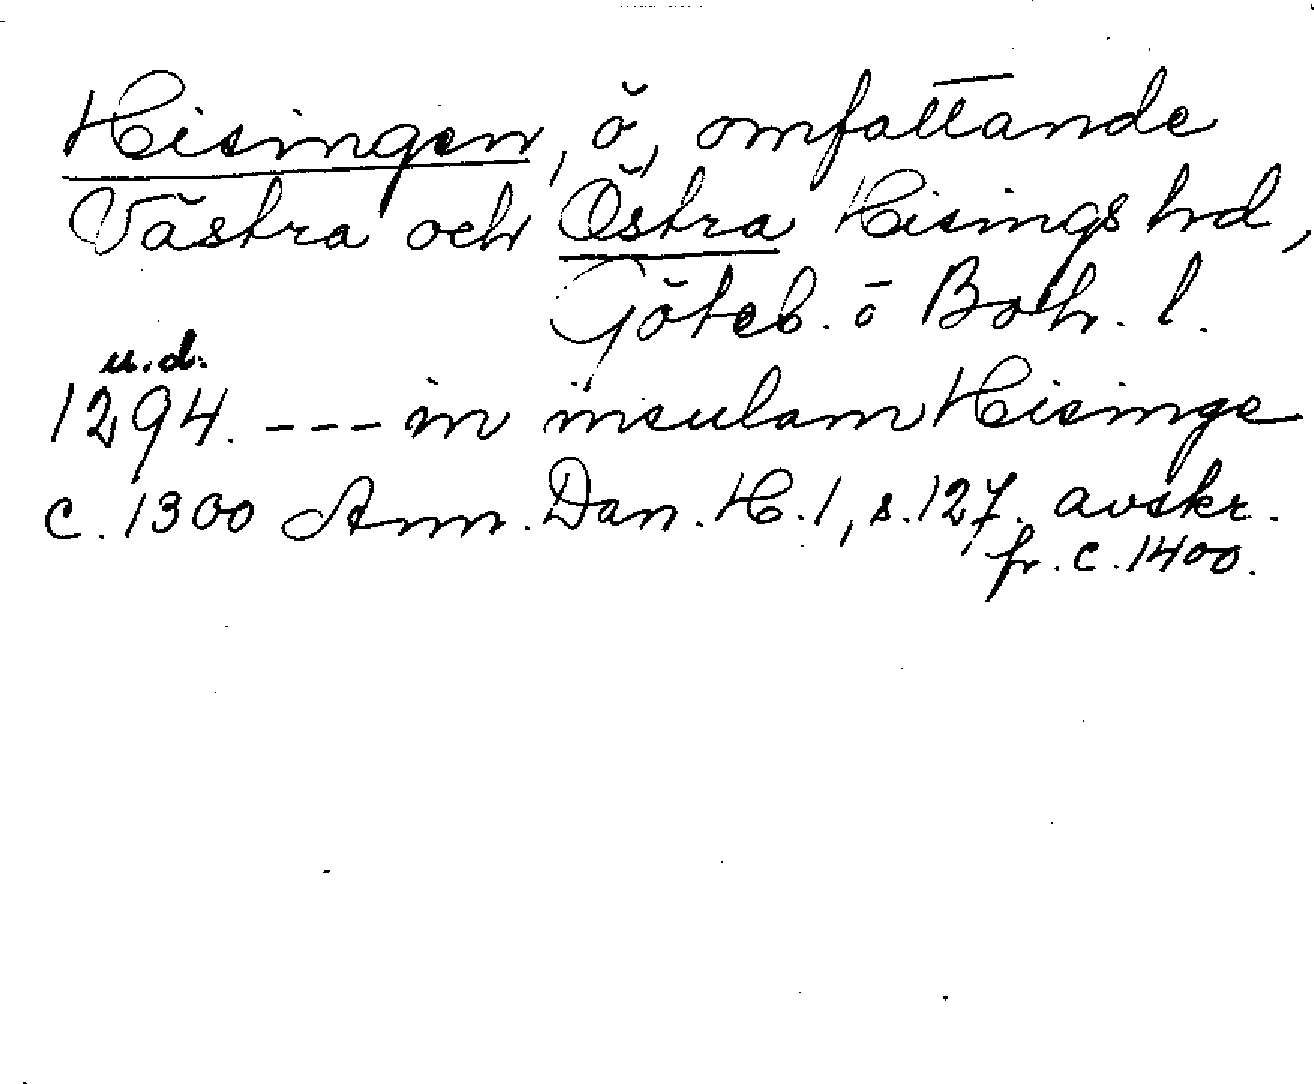 Hisingen, ö, omfattande
Västra och Östra Hisings hd,
Göteb. o Boh. l.
u.d.
1294. --- in insulam Hisinge
c. 1300 Ann. Dan. H. 1, s. 127. avskr.
fr. c. 1400.